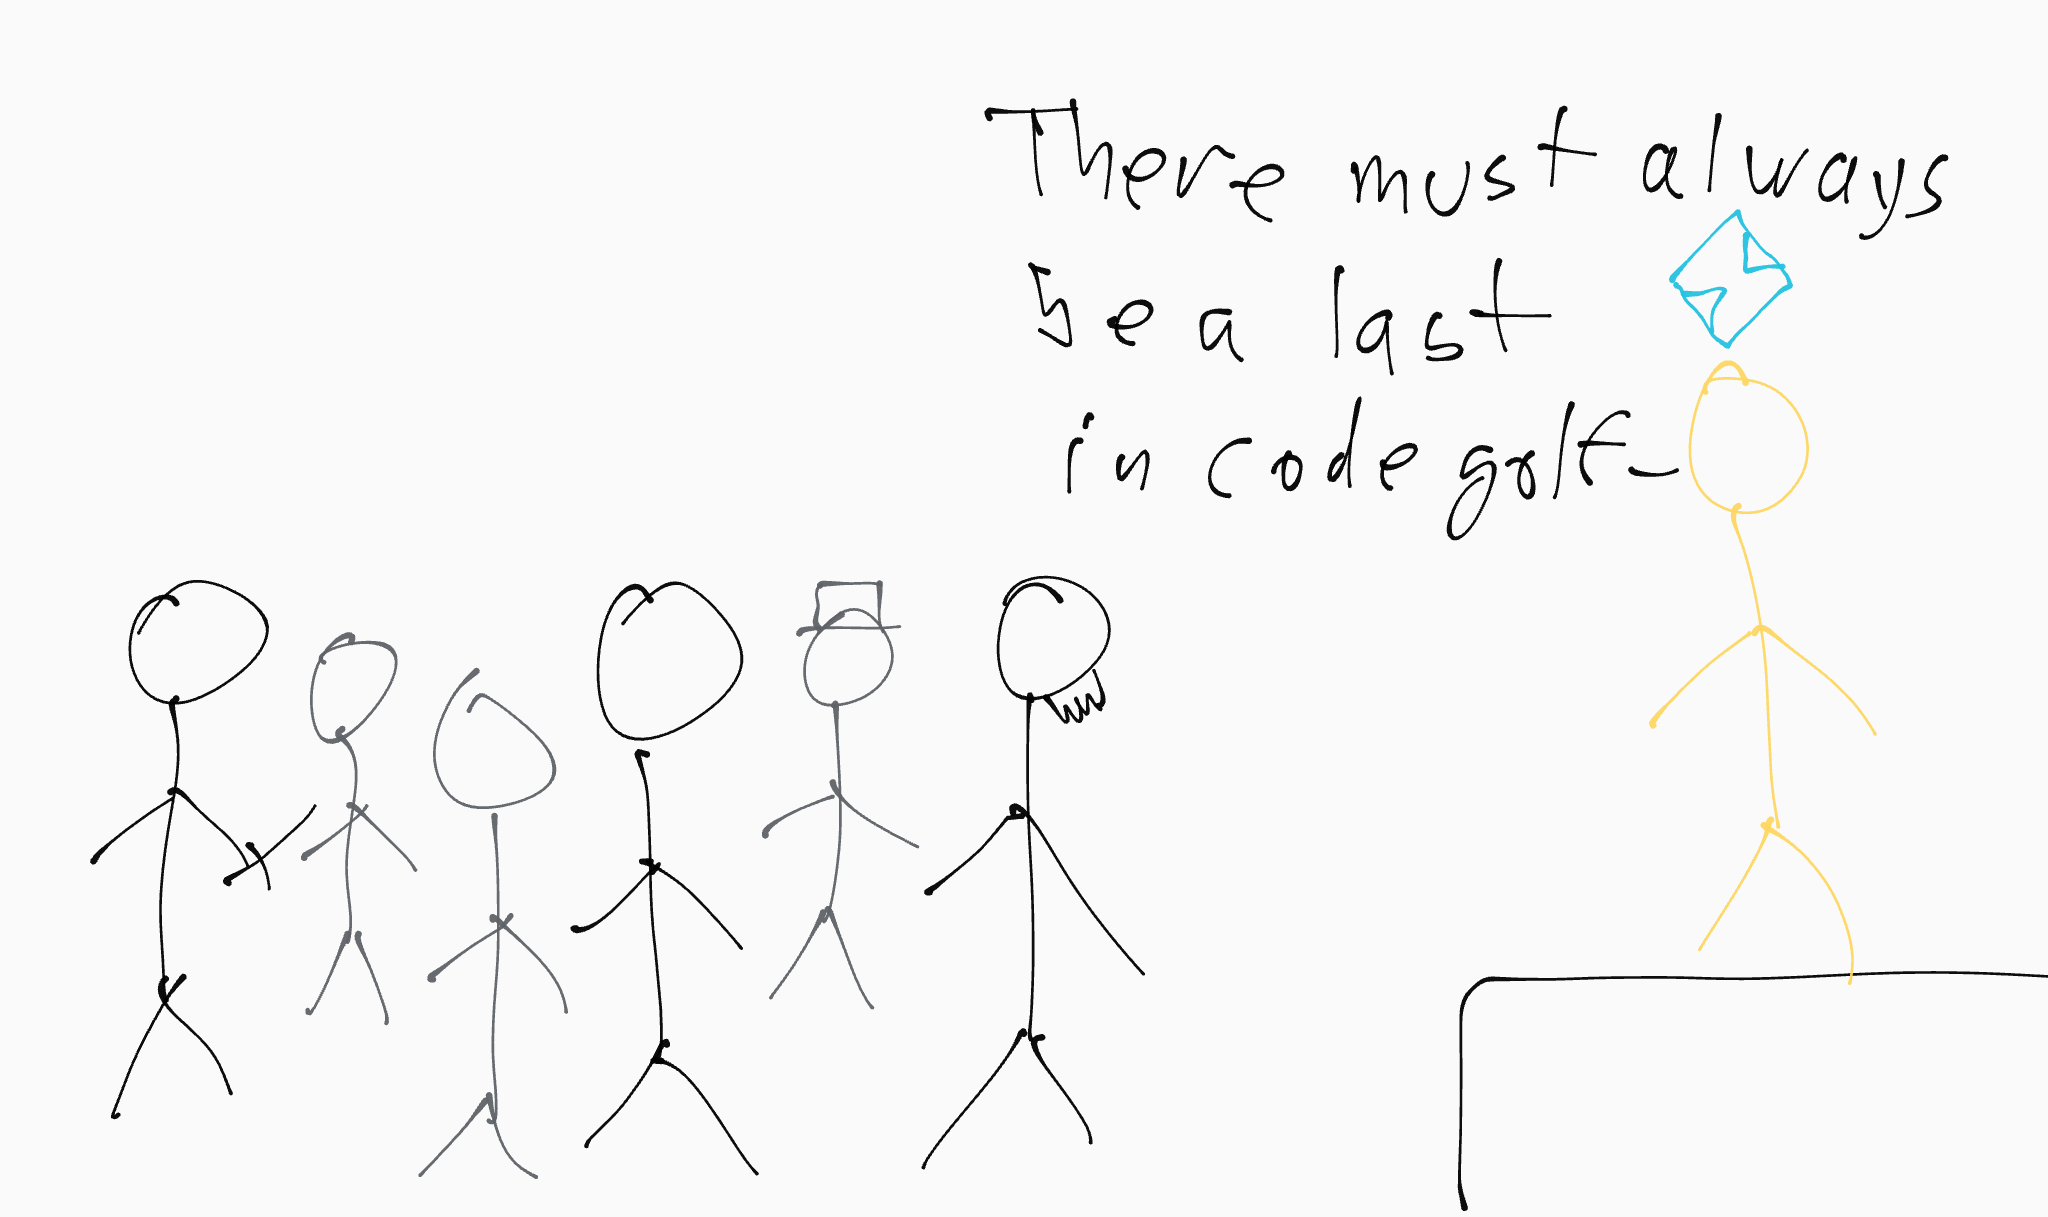 There must always
be a last
in code golf